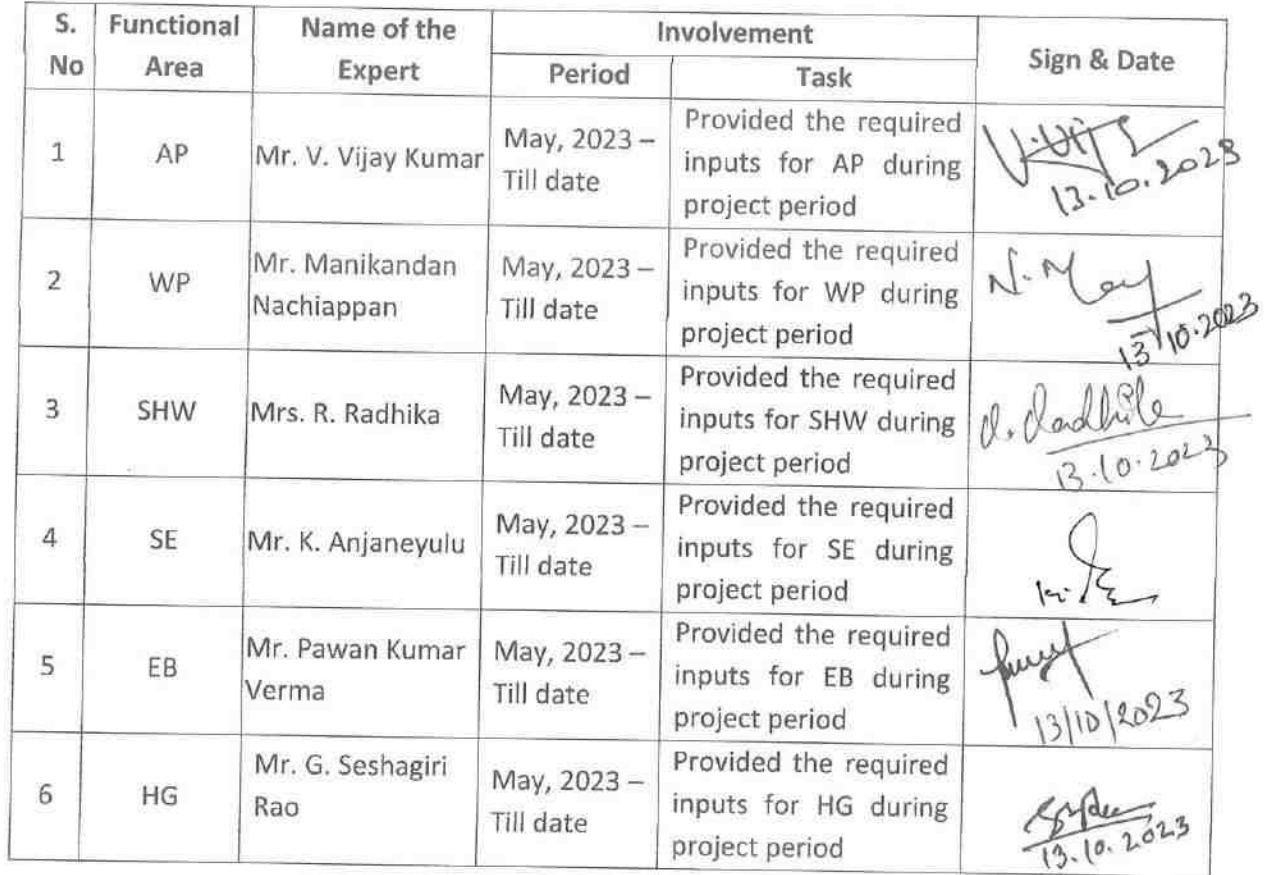 S. No Functional Area Name of the Expert Involvement Sign & Date
Period Task
1 AP Mr. V. Vijay Kumar May, 2023 – Till date Provided the required inputs for AP during project period 13.10.2023
2 WP Mr. Manikandan Nachiappan May, 2023 – Till date Provided the required inputs for WP during project period 13.10.2023
3 SHW Mrs. R. Radhika May, 2023 – Till date Provided the required inputs for SHW during project period 13.10.2023
4 SE Mr. K. Anjaneyulu May, 2023 – Till date Provided the required inputs for SE during project period
5 EB Mr. Pawan Kumar Verma May, 2023 – Till date Provided the required inputs for EB during project period 13/10/2023
6 HG Mr. G. Seshagiri Rao May, 2023 – Till date Provided the required inputs for HG during project period 13.10.2023